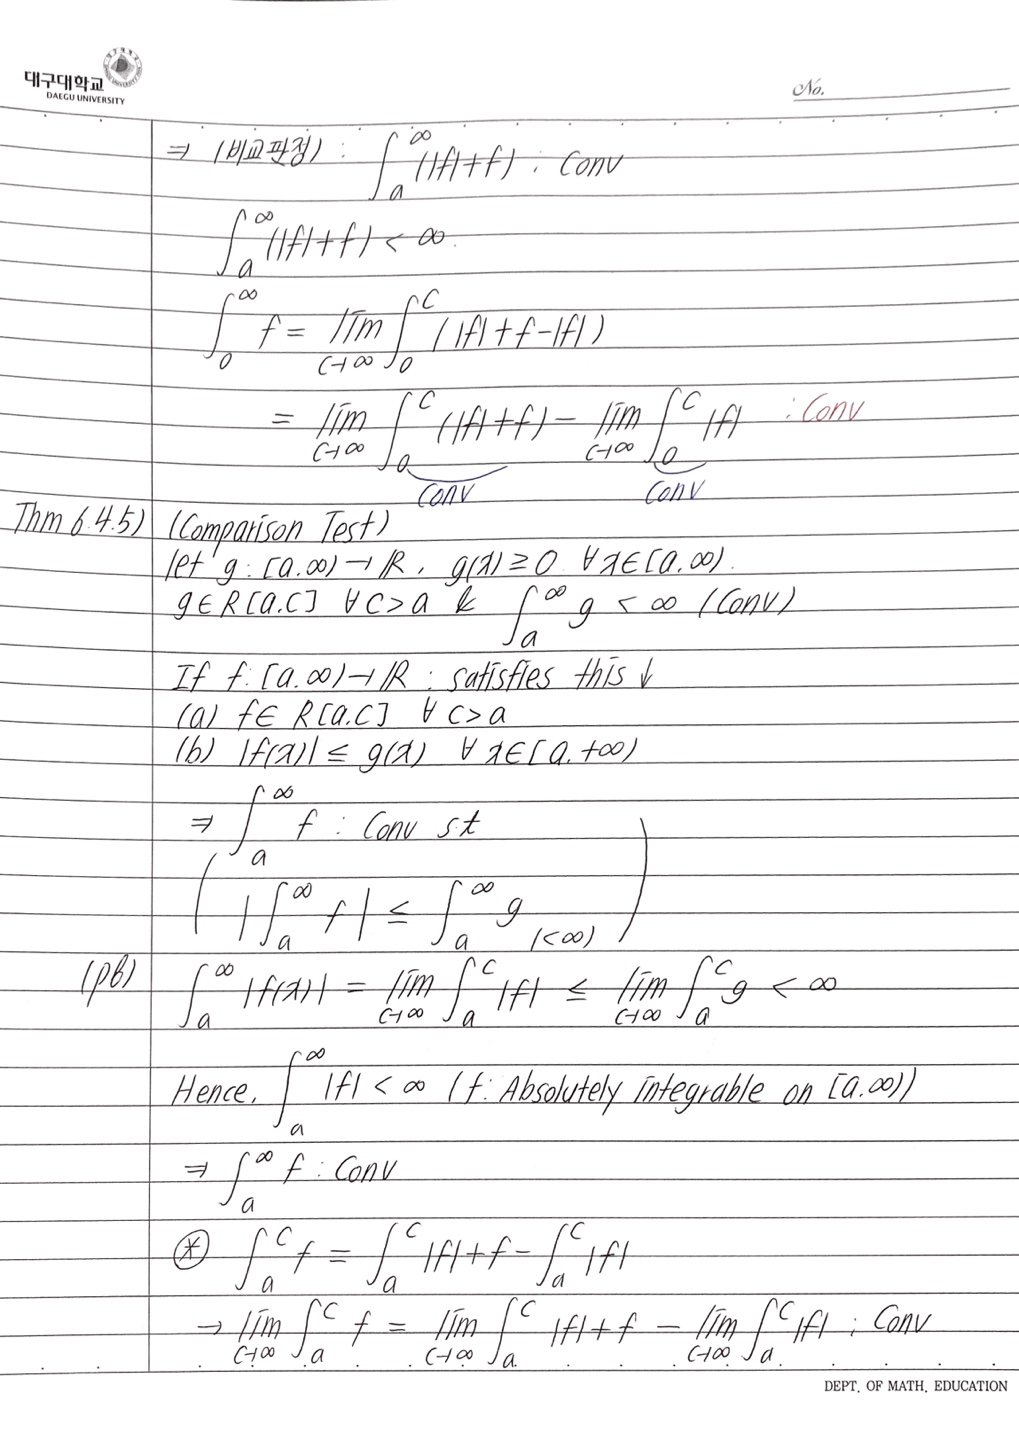 대구대학교
DAEGU UNIVERSITY
No.
⇒ (비교판정) : ∫_a^∞ (|f|+f) : Conv
∫_a^∞ (|f|+f) < ∞.
∫_0^∞ f = lim_{c→∞} ∫_0^c (|f|+f-|f|)
= lim_{c→∞} ∫_0^c (|f|+f) - lim_{c→∞} ∫_0^c |f| : Conv
Conv Conv
Thm 6.4.5) (Comparison Test)
let g : [a.∞) → ℝ, g(x) ≥ 0 ∀x∈[a,∞).
g∈R[a.c] ∀c>a & ∫_a^∞ g < ∞ (Conv)
If f: [a.∞)→ℝ : satisfies this ↓
(a) f∈ R[a.c] ∀ c>a
(b) |f(x)| ≤ g(x) ∀ x∈[a,+∞)
⇒ ∫_a^∞ f : Conv s.t
( |∫_a^∞ f| ≤ ∫_a^∞ g (<∞) )
(pf) ∫_a^∞ |f(x)| = lim_{c→∞} ∫_a^c |f| ≤ lim_{c→∞} ∫_a^c g < ∞
Hence, ∫_a^∞ |f| < ∞ (f: Absolutely integrable on [a.∞))
⇒ ∫_a^∞ f : Conv
⊛ ∫_a^c f = ∫_a^c |f|+f - ∫_a^c |f|
→ lim_{c→∞} ∫_a^c f = lim_{c→∞} ∫_a^c |f|+f - lim_{c→∞} ∫_a^c |f| ; Conv
DEPT. OF MATH. EDUCATION